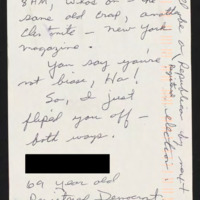 8AM, who's on - the
same old crap, another
Clintonite - New York
magazine.
You say you're
not biase, Ha!
So, I just
fliped you off -
both ways.
69 year old
Democrat
or Republican by next
election